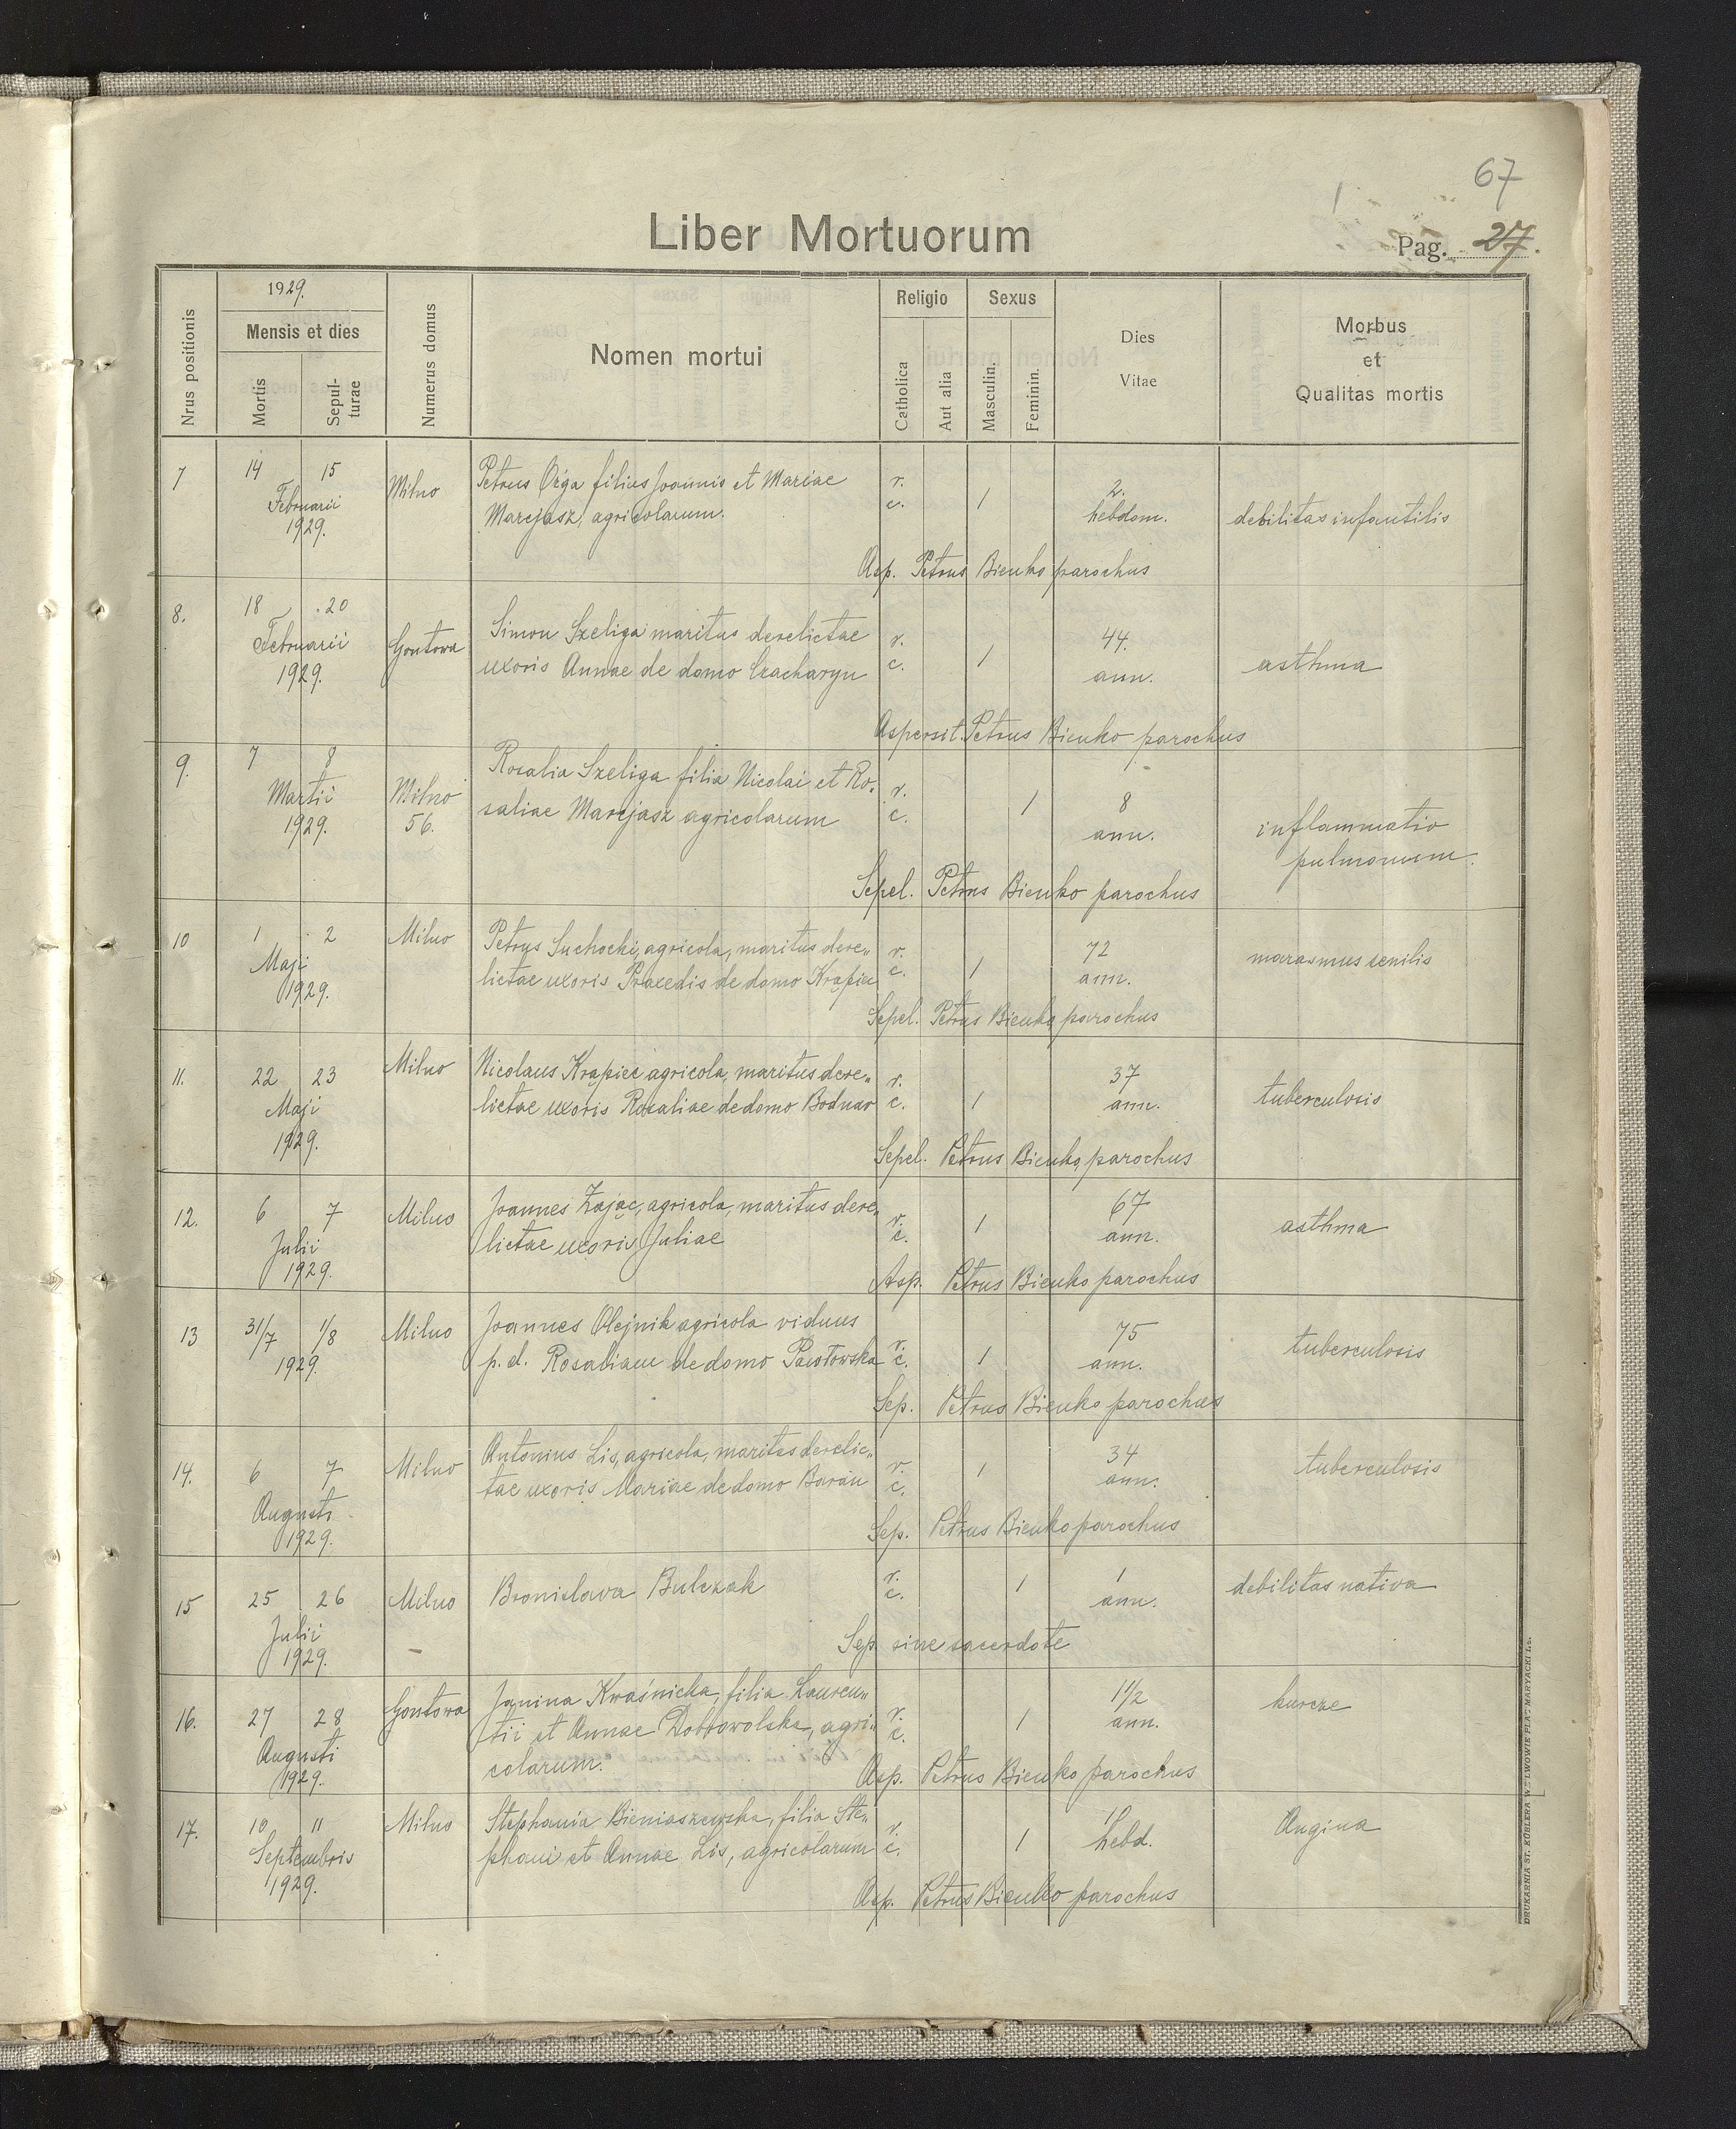 67
Liber Mortuorum
Pag. 27.
Nrus positionis
1929.
Mensis et dies
Mortis
Sepul-
turae
Numerus domus
Nomen mortui
Religio
Catholica
Aut alia
Sexus
Masculin.
Feminin.
Dies
Vitae
Morbus
et
Qualitas mortis
7 14 15 Februarii 1929. Milno
Petrus Orga filius Joannis et Mariae
Marcjasz, agricolarum.
r. c. 1 2. hebdom. debilitas infantilis
Asp. Petrus Bieńko parochus
8. 18 20 Februarii 1929. Gontowa
Simon Szeliga maritus derelictae
uxoris Annae de domo Czacharyn
r. c. 1 44. ann. asthma
Aspersit Petrus Bieńko parochus
9. 7 8 Martii 1929. Milno 56.
Rosalia Szeliga filia Nicolai et Ro-
saliae Marcjasz agricolarum
r. c. 1 8 ann. inflammatio
pulmonum.
Sepel. Petrus Bieńko parochus
10 1 2 Maji 1929. Milno
Petrus Suchocki, agricola, maritus dere„
lictae uxoris Praxedis de domo Krąpiec
r. c. 1 72 ann. marasmus senilis
Sepel. Petrus Bieńko parochus
11. 22 23 Maji 1929. Milno
Nicolaus Krąpiec agricola, maritus dere„
lictae uxoris Rosaliae de domo Bodnar
r. c. 1 37 ann. tuberculosis
Sepel. Petrus Bieńko parochus
12. 6 7 Julii 1929. Milno
Joannes Zając, agricola, maritus dere„
lictae uxoris Juliae
r. c. 1 67 ann. asthma
Asp. Petrus Bieńko parochus
13 31/7 1/8 1929. Milno
Joannes Olejnik agricola viduus
p. d. Rosaliam de domo Pawłowska
r. c. 1 75 ann. tuberculosis
Sep. Petrus Bieńko parochus
14. 6 7 Augusti 1929. Milno
Antonius Lis, agricola, maritus derelic„
tae uxoris Mariae de domo Baran
r. c. 1 34 ann. tuberculosis
Sep. Petrus Bieńko parochus
15 25 26 Julii 1929. Milno
Bronislava Bulczak
r. c. 1 1 ann. debilitas nativa
Sep. sine sacerdote
16. 27 28 Augusti 1929. Gontowa
Janina Kwaśnicka, filia Lauren„
tii et Annae Dobrowolska, agri„
colarum.
r. c. 1 1 1/2 ann. kurcze
Asp. Petrus Bieńko parochus
17. 10 11 Septembris 1929. Milno
Stephania Bieniaszewska, filia Ste„
phani et Annae Lis, agricolarum
r. c. 1 hebd. Angina
Asp. Petrus Bieńko parochus
DRUKARNIA ST. KÖHLERA WE LWOWIE PLAC MARYACKI